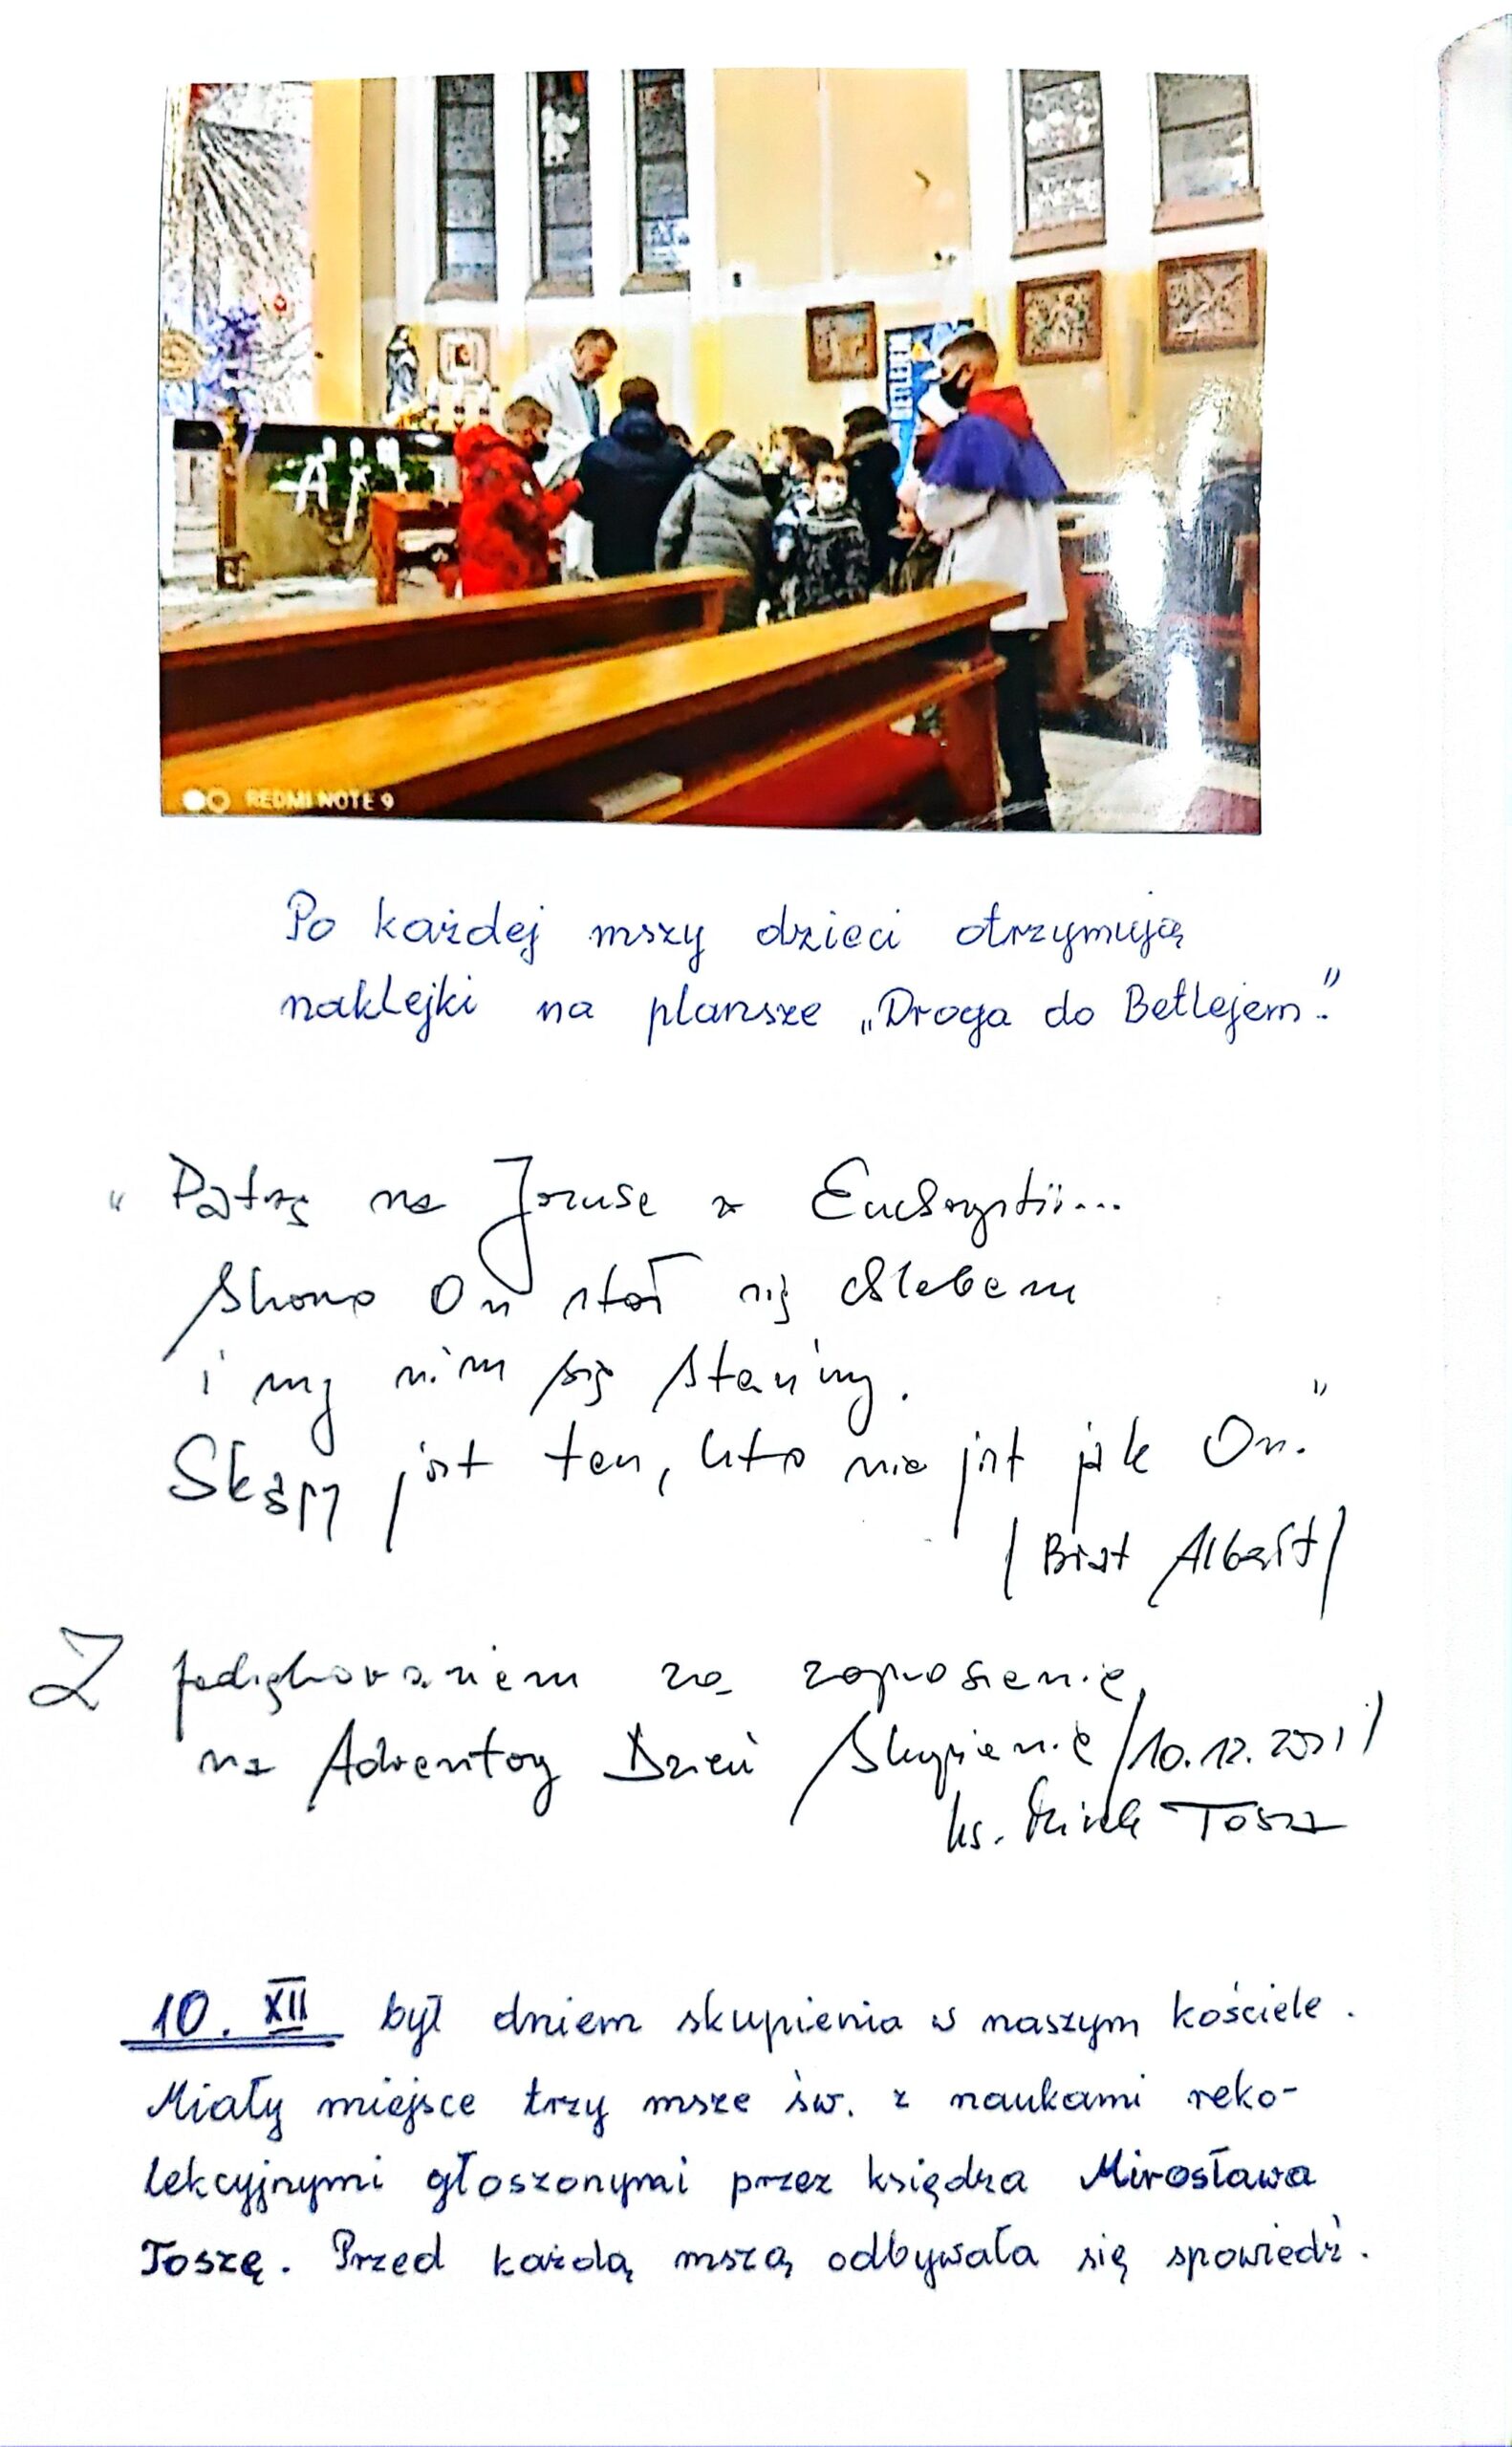 BETLEJEM
REDMI NOTE 9
Po każdej mszy dzieci otrzymują
naklejki na plansze „Droga do Betlejem".
„Patrzę na Jezusa w Eucharystii...
Skoro On stał się chlebem
i my nim się stańmy.
Skąpy jest ten, kto nie jest jak On."
/Brat Albert/
Z podziękowaniem za zaproszenie
na Adwentowy Dzień Skupienia /10.12.2021/
ks. Mirek Tosza
10. XII był dniem skupienia w naszym kościele.
Miały miejsce trzy msze św. z naukami reko-
lekcyjnymi głoszonymi przez księdza Mirosława
Toszę. Przed każdą mszą odbywała się spowiedź.